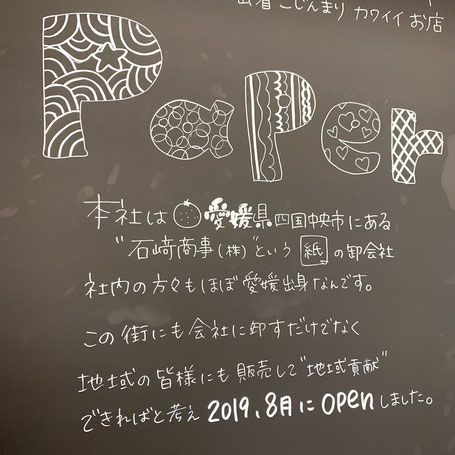 こじんまり カワイイ お店
Paper
本社は 愛媛県 四国中央市にある
"石﨑商事(株)"という 紙 の卸会社
社内の方々もほぼ愛媛出身なんです。
この街にも会社に卸すだけでなく
地域の皆様にも販売して"地域貢献"
できればと考え 2019.8月に Openしました。